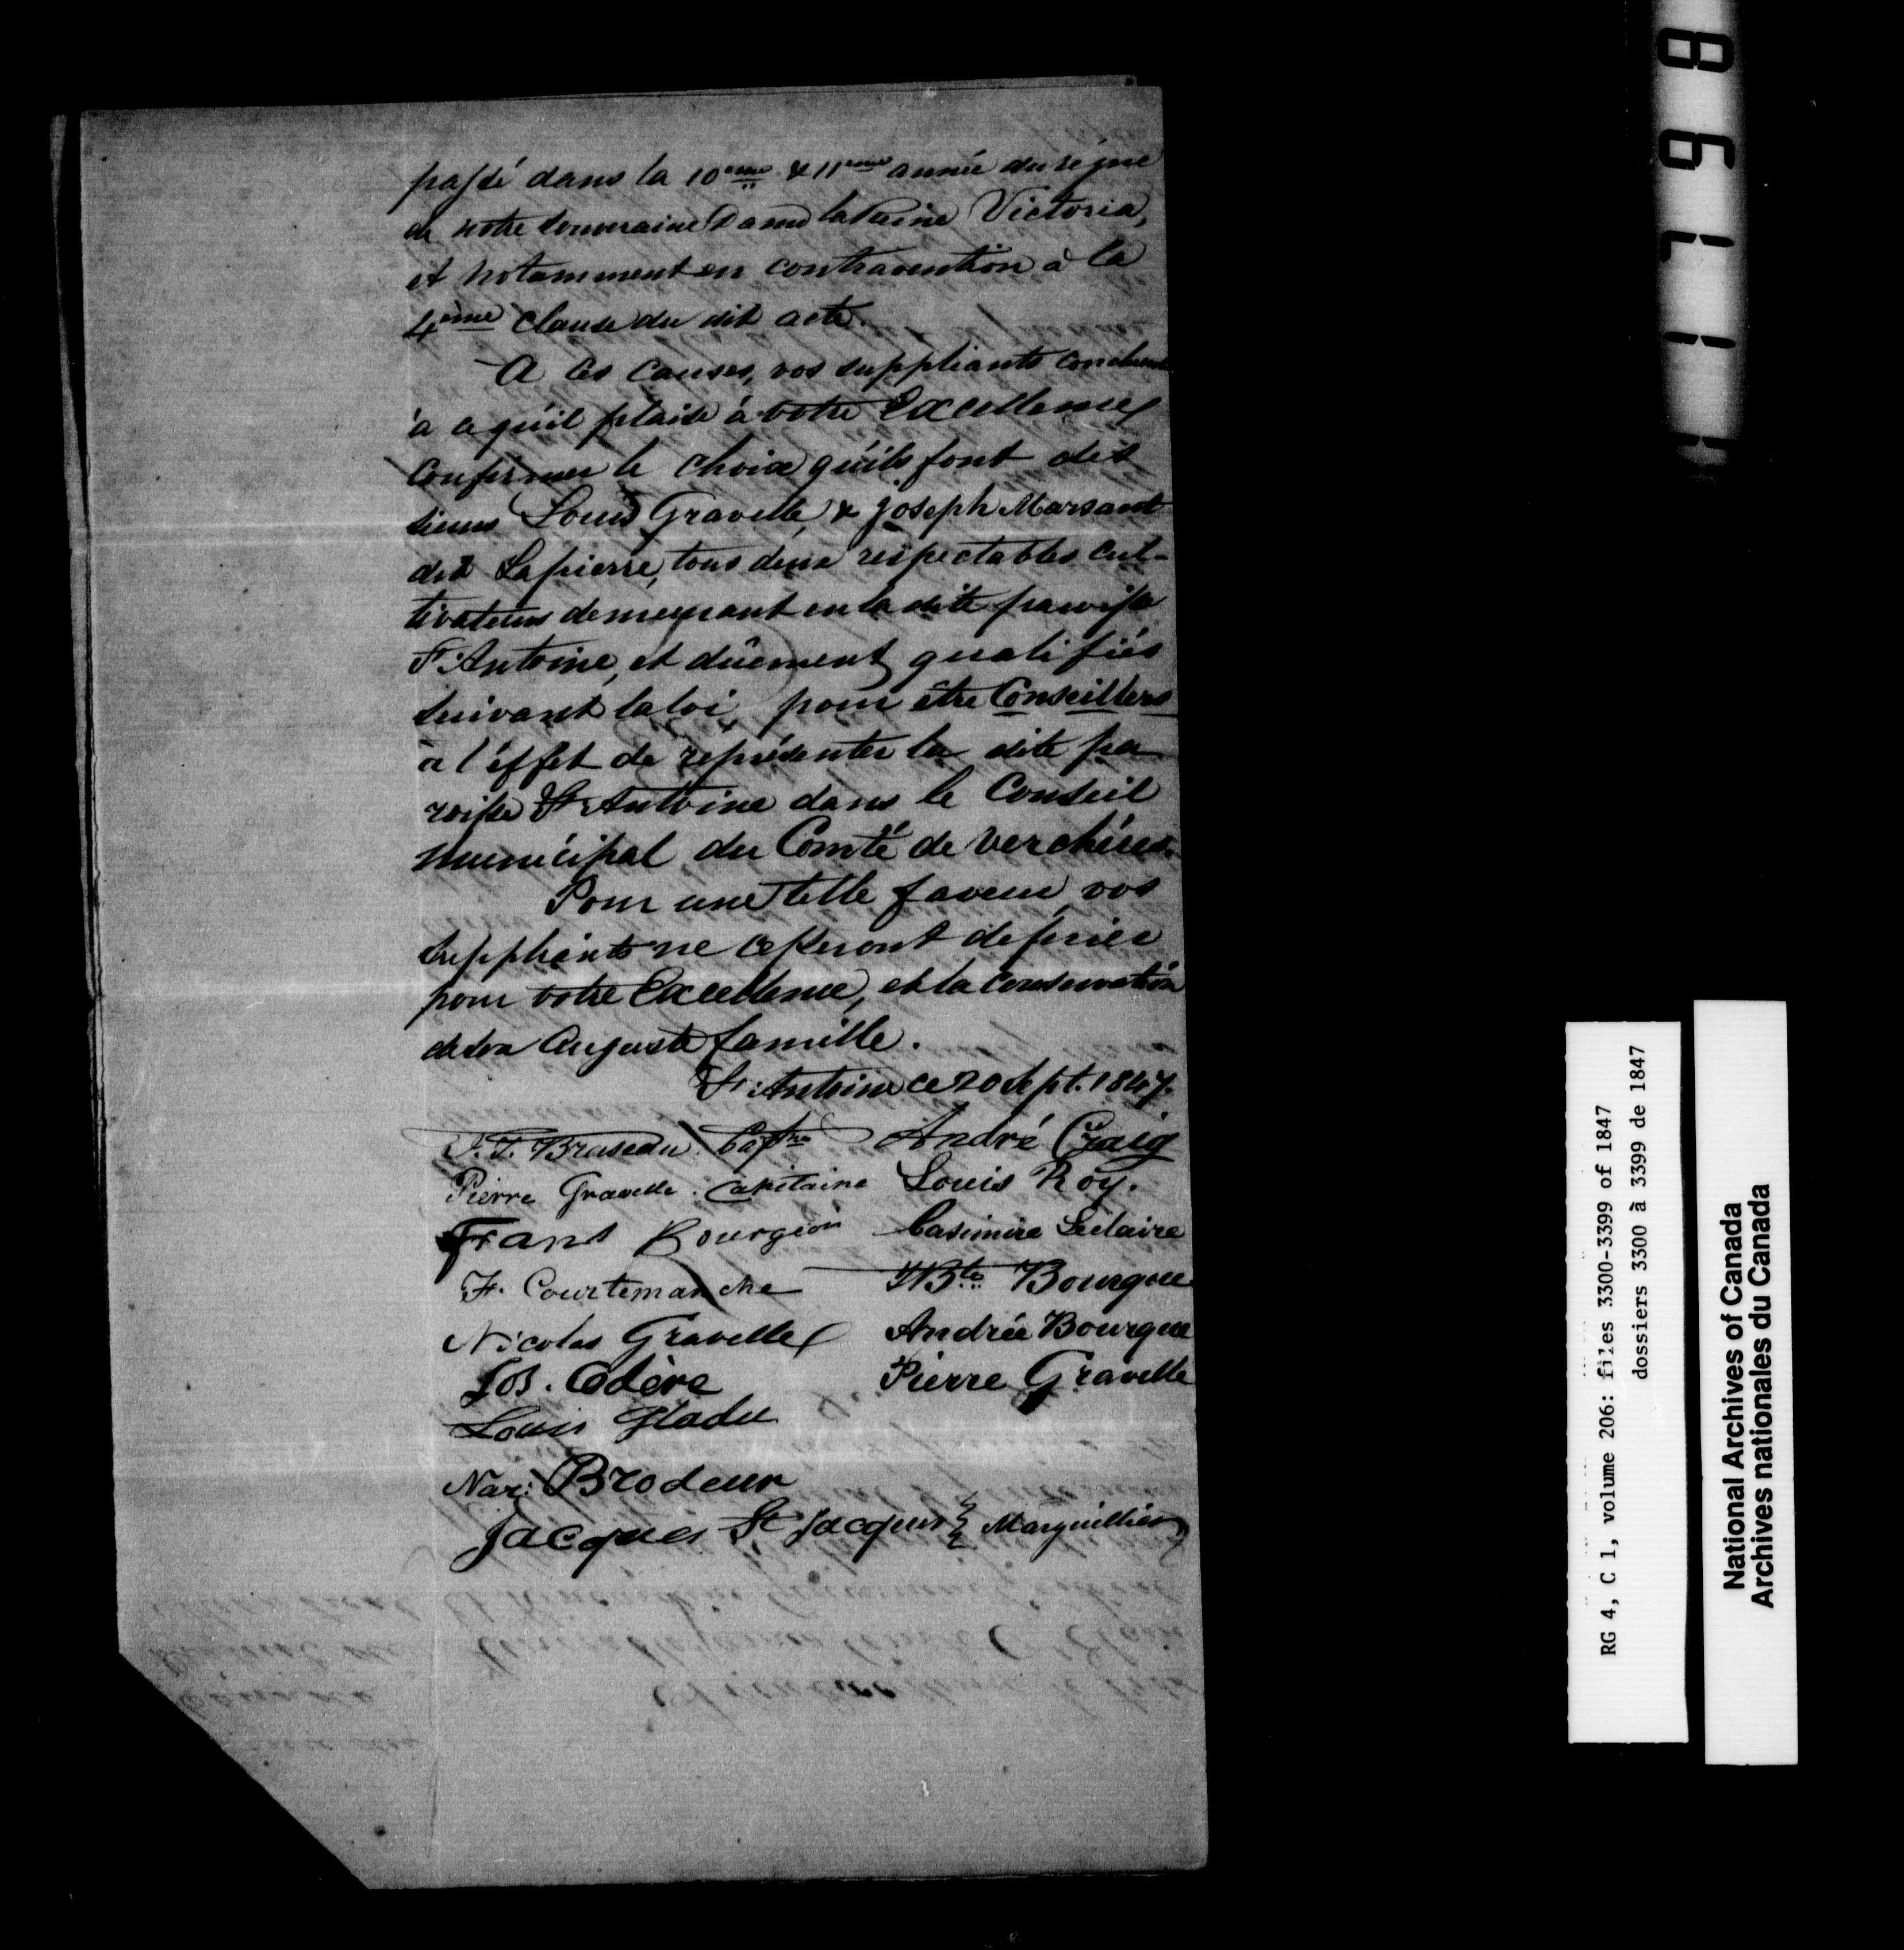 passé dans la 10eme & 11eme année du règne
de notre Souveraine Dame la Reine Victoria,
et notamment en contravention à la
4eme Clause du dit acte.
A ces causes, vos suppliants concluent
à ce qu'il plaise à votre Excellence
Confirmer le choix qu'ils font des
sieurs Louis Gravelle, & Joseph Marsant
dit Lapierre, tous deux respectables cul-
tivateurs demeurant en la dite paroisse
St Antoine, et dûement qualifiés
suivant la loi, pour être Conseillers
à l'éffet de représenter la dite pa
roisse St Antoine dans le Conseil
municipal du Comté de Verchères.
Pour une telle faveur, vos
suppliants ne cesseront de prier
pour votre Excellence, et la conservation
de son Auguste famille.
St: Antoine ce 20 Sept. 1847.
Braseau. Captne André Craig
Pierre Gravelle. Capitaine Louis Roy.
Frans Bourgeois Casimire Leclaire
F. Courtemanche JBte Bourgue
Nicolas Gravelle Andrée Bourgue
Jos. Pierre Gravelle
Louis Gladu
Nar: Brodeur
Jacques St Jacques Marguillier
8
6
7
1
1
RG 4, C 1, volume 206: files 3300-3399 of 1847
dossiers 3300 à 3399 de 1847
National Archives of Canada
Archives nationales du Canada